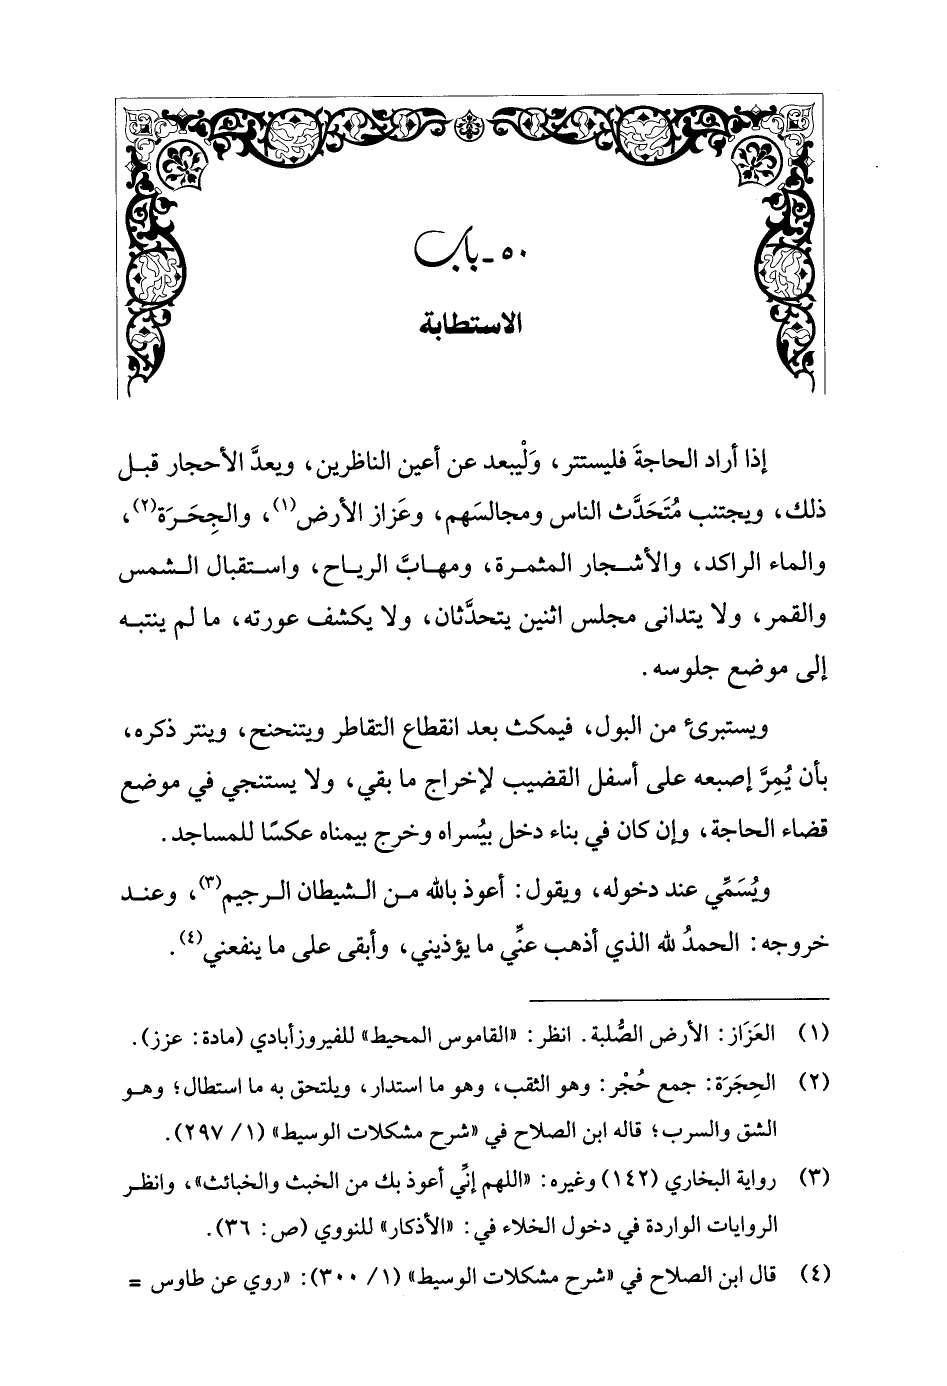 ٥٠ - باب
الاستطابة
إذا أراد الحاجةَ فليستتر، وَلْيبعد عن أعين الناظرين، ويعدَّ الأحجار قبل
ذلك، ويجتنب مُتَحَدَّث الناس ومجالسَهم، وعَزاز الأرض(١)، والجِحَرَة(٢)،
والماء الراكد، والأشجار المثمرة، ومهابَّ الرياح، واستقبال الشمس
والقمر، ولا يتدانى مجلس اثنين يتحدَّثان، ولا يكشف عورته، ما لم ينتبه
إلى موضع جلوسه.
ويستبرئ من البول، فيمكث بعد انقطاع التقاطر ويتنحنح، وينتر ذكره،
بأن يُمِرَّ إصبعه على أسفل القضيب لإخراج ما بقي، ولا يستنجي في موضع
قضاء الحاجة، وإن كان في بناء دخل بيُسراه وخرج بيمناه عكسًا للمساجد.
ويُسَمِّي عند دخوله، ويقول: أعوذ بالله من الشيطان الرجيم(٣)، وعند
خروجه: الحمدُ لله الذي أذهب عنِّي ما يؤذيني، وأبقى على ما ينفعني(٤).
(١) العَزَاز: الأرض الصُّلبة. انظر: «القاموس المحيط» للفيروزأبادي (مادة: عزز).
(٢) الحِجَرَة: جمع حُجْر: وهو الثقب، وهو ما استدار، ويلتحق به ما استطال؛ وهو
الشق والسرب؛ قاله ابن الصلاح في «شرح مشكلات الوسيط» (١/ ٢٩٧).
(٣) رواية البخاري (١٤٢) وغيره: «اللهم إنِّي أعوذ بك من الخبث والخبائث»، وانظر
الروايات الواردة في دخول الخلاء في: «الأذكار» للنووي (ص: ٣٦).
(٤) قال ابن الصلاح في «شرح مشكلات الوسيط» (١/ ٣٠٠): «روي عن طاوس =